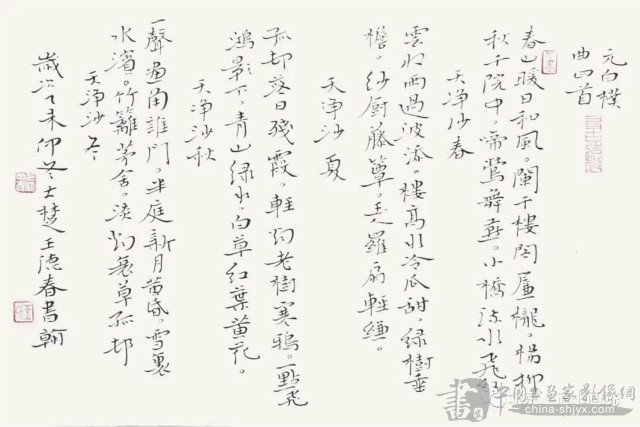 元白樸
曲四首
春山暖日和風。闌干樓閣簾櫳。楊柳
秋千院中。啼鶯舞燕。小橋流水飛紅
天淨沙春
雲收雨過波添。樓高水冷瓜甜。綠樹垂
檐。紗厨藤簟。玉人羅扇輕縑。
天淨沙夏
孤邨落日殘霞。輕烟老樹寒鴉。一點飛
鴻影下。青山綠水。白草紅葉黃花。
天淨沙秋
一聲畫角譙門。半庭新月黃昏。雪裏
水濱。竹籬茅舍。淡烟衰草孤邨
天淨沙冬
歲次乙未仲冬古楚王德春書翰
中國書畫家影像網
china-shjyx.com